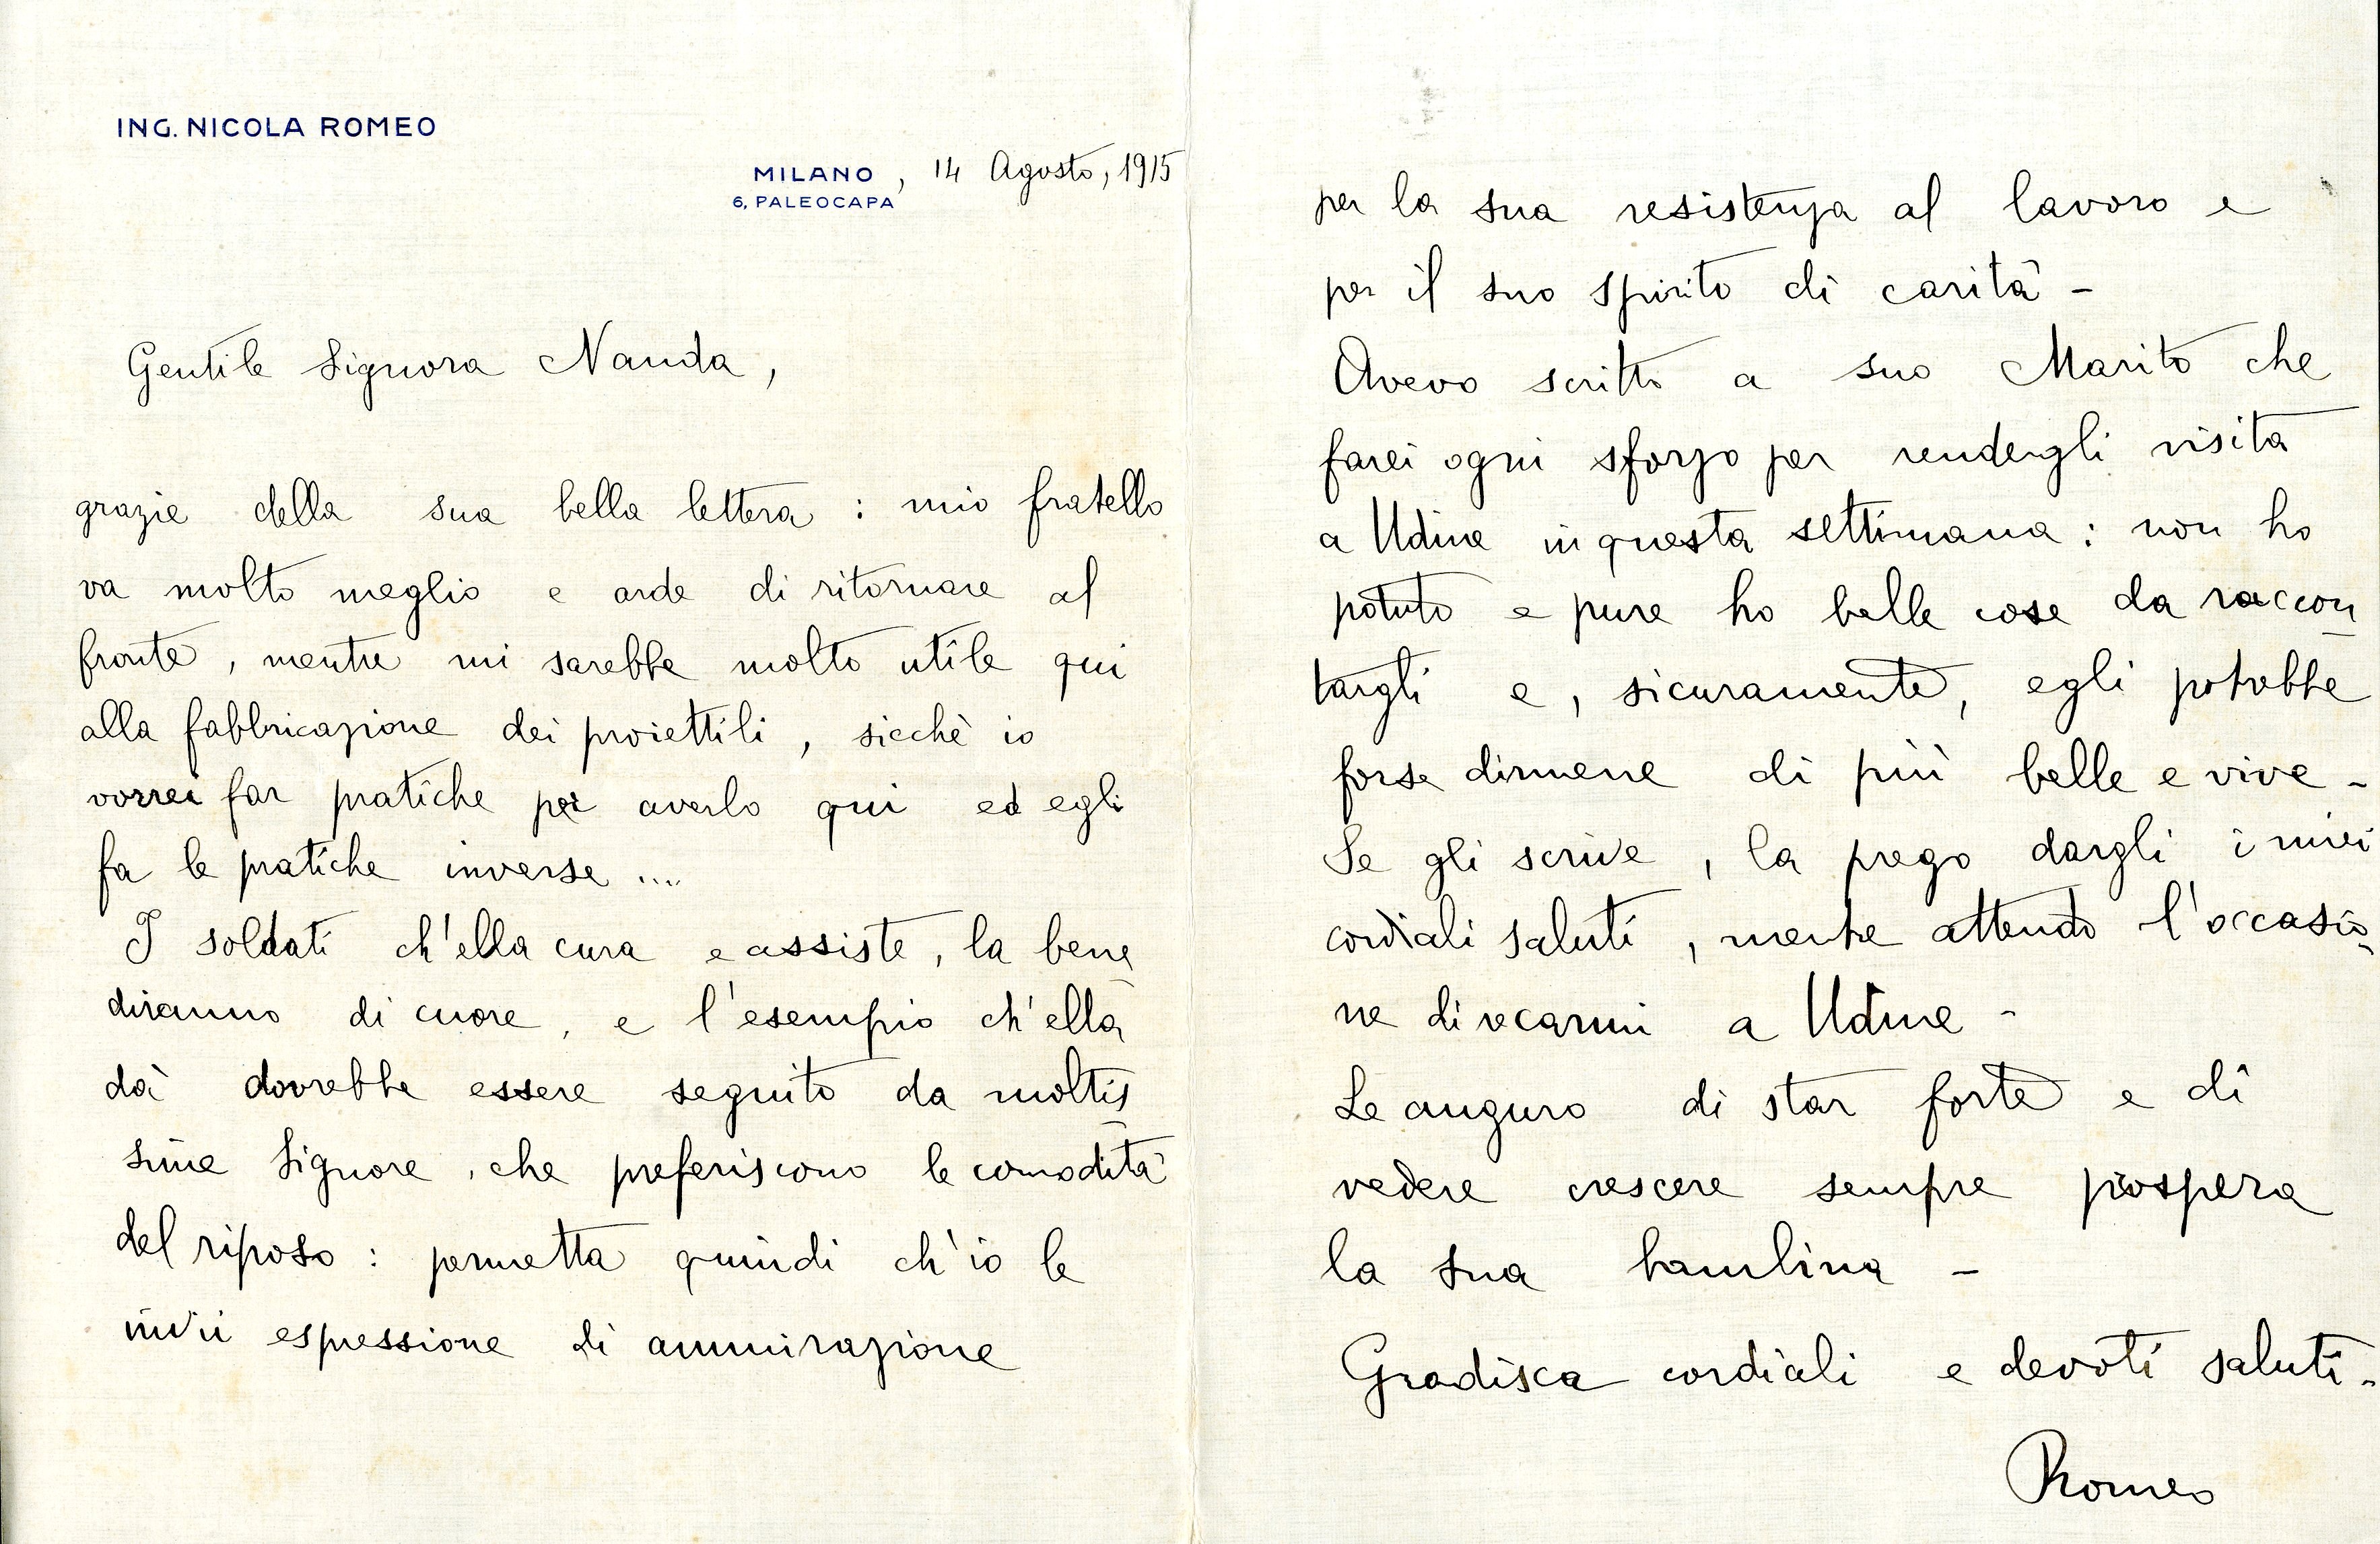 ING. NICOLA ROMEO
MILANO, 14 Agosto, 1915
6, PALEOCAPA
Gentile Signora Nanda,
grazie della sua bella lettera : mio fratello
va molto meglio e arde di ritornare al
fronte, mentre mi sarebbe molto utile qui
alla fabbricazione dei proiettili, sicchè io
vorrei far pratiche per averlo qui ed egli
fa le pratiche inverse ....
I soldati ch'ella cura e assiste, la bene
diranno di cuore, e l'esempio ch'ella
dà dovrebbe essere seguito da moltis
sime Signore, che preferiscono le comodità
del riposo : permetta quindi ch'io le
invii espressione di ammirazione
per la sua resistenza al lavoro e
per il suo spirito di carità -
Avevo scritto a suo Marito che
farei ogni sforzo per rendergli visita
a Udine in questa settimana : non ho
potuto e pure ho belle cose da raccon
targli e, sicuramente, egli potrebbe
forse dirmene di più belle e vive -
Se gli scrive, la prego dargli i miei
cordiali saluti, mentre attendo l'occasio
ne di recarmi a Udine -
Le auguro di star forte e di
vedere crescere sempre prospera
la sua bambina -
Gradisca cordiali e devoti saluti -
Romeo